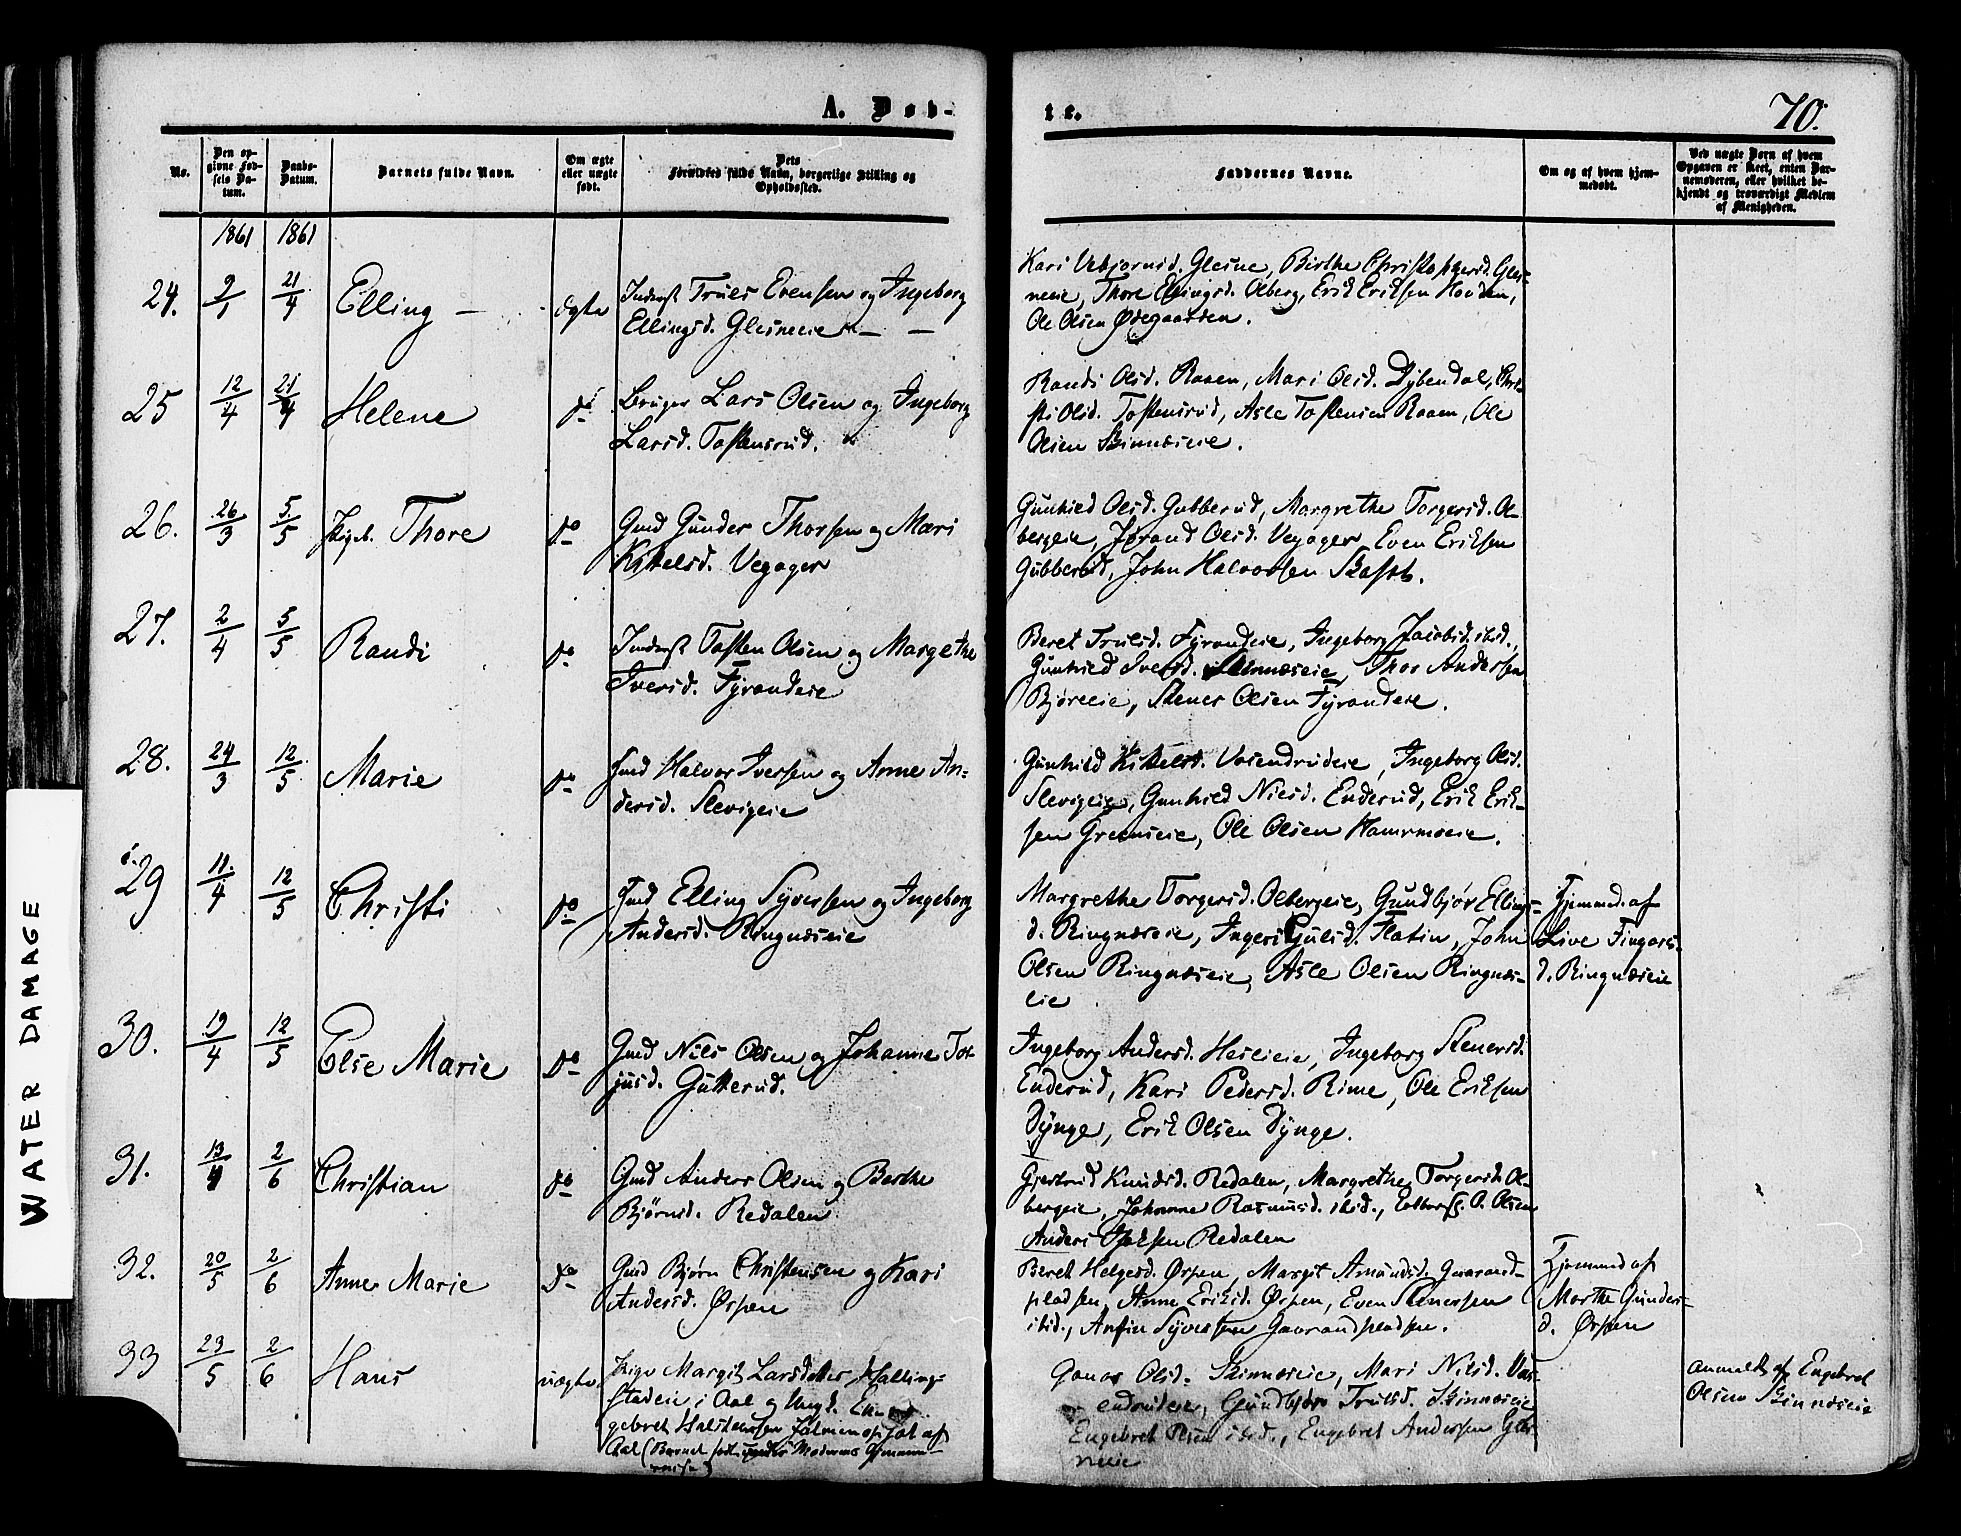 A. Døb-
te.
70.
No.
Den op-
givne Fød-
sels Da-
tum.
Daabs-
Datum.
Barnets fulde Navn.
Om ægte
eller uægte
født.
Dets
Forældres fulde Navn, borgerlige Stilling og
Opholdssted.
Faddernes Navne.
Om og af hvem hjem-
medøbt.
Ved uægte Børn af hvem
Opgaven er skeet, enten Bar-
nemoderen, eller hvilket be-
kjendt og troværdigt Medlem
af Menigheden.
1861 1861
24. 21/4 Elling — ægte Inderst Truls Evensen og Ingeborg
Ellingsd. Glesneeie — —
Kari Glesne, Birthe Christophersd. Gles-
neeie, Thore Ellingsd. Olberg, Erik Eriksen Hovden,
Ole Olsen Ødegaarden.
25 12/4 21/4 Helene do Bruger Lars Olsen og Ingeborg
Larsd. Tostensrud.
Randi Olsd. Raaen, Mari Olsd. Dybendal, Chri-
sti Olsd. Tostensrud, Asle Tostensen Raaen, Ole
Olsen Skinnæseie.
26. 26/3 5/5 Thore do Gmd Gunder Thorsen og Mari
Kittelsd. Veqager
Gunhild Olsd. Gubberud, Margrethe Torgersd. Ol-
bergeie, Jørand Olsd. Veqager, Even Eriksen
Gubberud, John Halvorsen
27. 2/4 5/5 Randi do Inderst Tosten Olsen og Margethe
Iversd. Fyrandeie
Beret Trulsd. Fyrandeie, Ingeborg Jacobsd. ibid.,
Gunhild Iversd. Skinnæseie, Thor Andersen
Bjøreeie, Stener Olsen Fyrandeie.
28. 24/3 12/5 Marie do Gmd Halvor Iversen og Anne An-
dersd. Slevigeie
Gunhild Kittelsd. Vasendrudeie, Ingeborg Olsd.
Slevigeie, Gunhild Nilsd. Enderud, Erik Erik-
sen Grønseie, Ole Olsen
29 11/4 12/5 Christi do Gmd Elling Syversen og Ingeborg
Andersd. Ringnæseie
Margrethe Torgersd. Olbergeie, Gundbjør Ellings-
d. Ringnæseie, Flatin, John
Olsen Ringnæseie, Asle Olsen Ringnæs-
eie
Hjemmed. af
Live Fingars-
d. Ringnæseie
30. 19/4 12/5 Else Marie Do Gmd Nils Olsen og Johanne Tor-
jusd. Gutterud.
Ingeborg Andersd. Heslieie, Ingeborg Stenersd.
Enderud, Kari Pedersd. Rime, Ole Eriksen
Dynge, Erik Olsen Dynge.
31. 13/4 2/6 Christian do Gmd Anders Olsen og Berthe
Bjørnsd. Redalen
Gjertrud Knudsd. Redalen, Margrethe Torgersd. Ol-
bergeie, Johanne Rasmusd. ibid., O. Olsen
Anders Redalen
32. 20/5 2/6 Anne Marie Do Gmd Bjørn Christensen og Kari
Andersd. Ørpen
Beret Helgesd. Ørpen, Margit Amundsd. Gaarand-
pladsen, Anne Eriksd. Ørpen, Even Stenersen
ibid., Anfin Syversen Gaarandpladsen.
Hjemmed af
Marthe Gunders-
d. Ørpen
33 23/5 2/6 Hans uægte Pige Margit Larsdatter, Halling-
stadeie i Aal og Ungk. En-
gebret Halstensen af
Aal (Barnet født
Skinnæseie, Mari Nilsd. Vas-
endrudeie, Gundbjør Trulsd. Skinnæseie
Engebret Olsen ibid., Engebret Andersen Gles-
neeie
anmeldt af Engebret
Olsen Skinnæseie
WATER DAMAGE